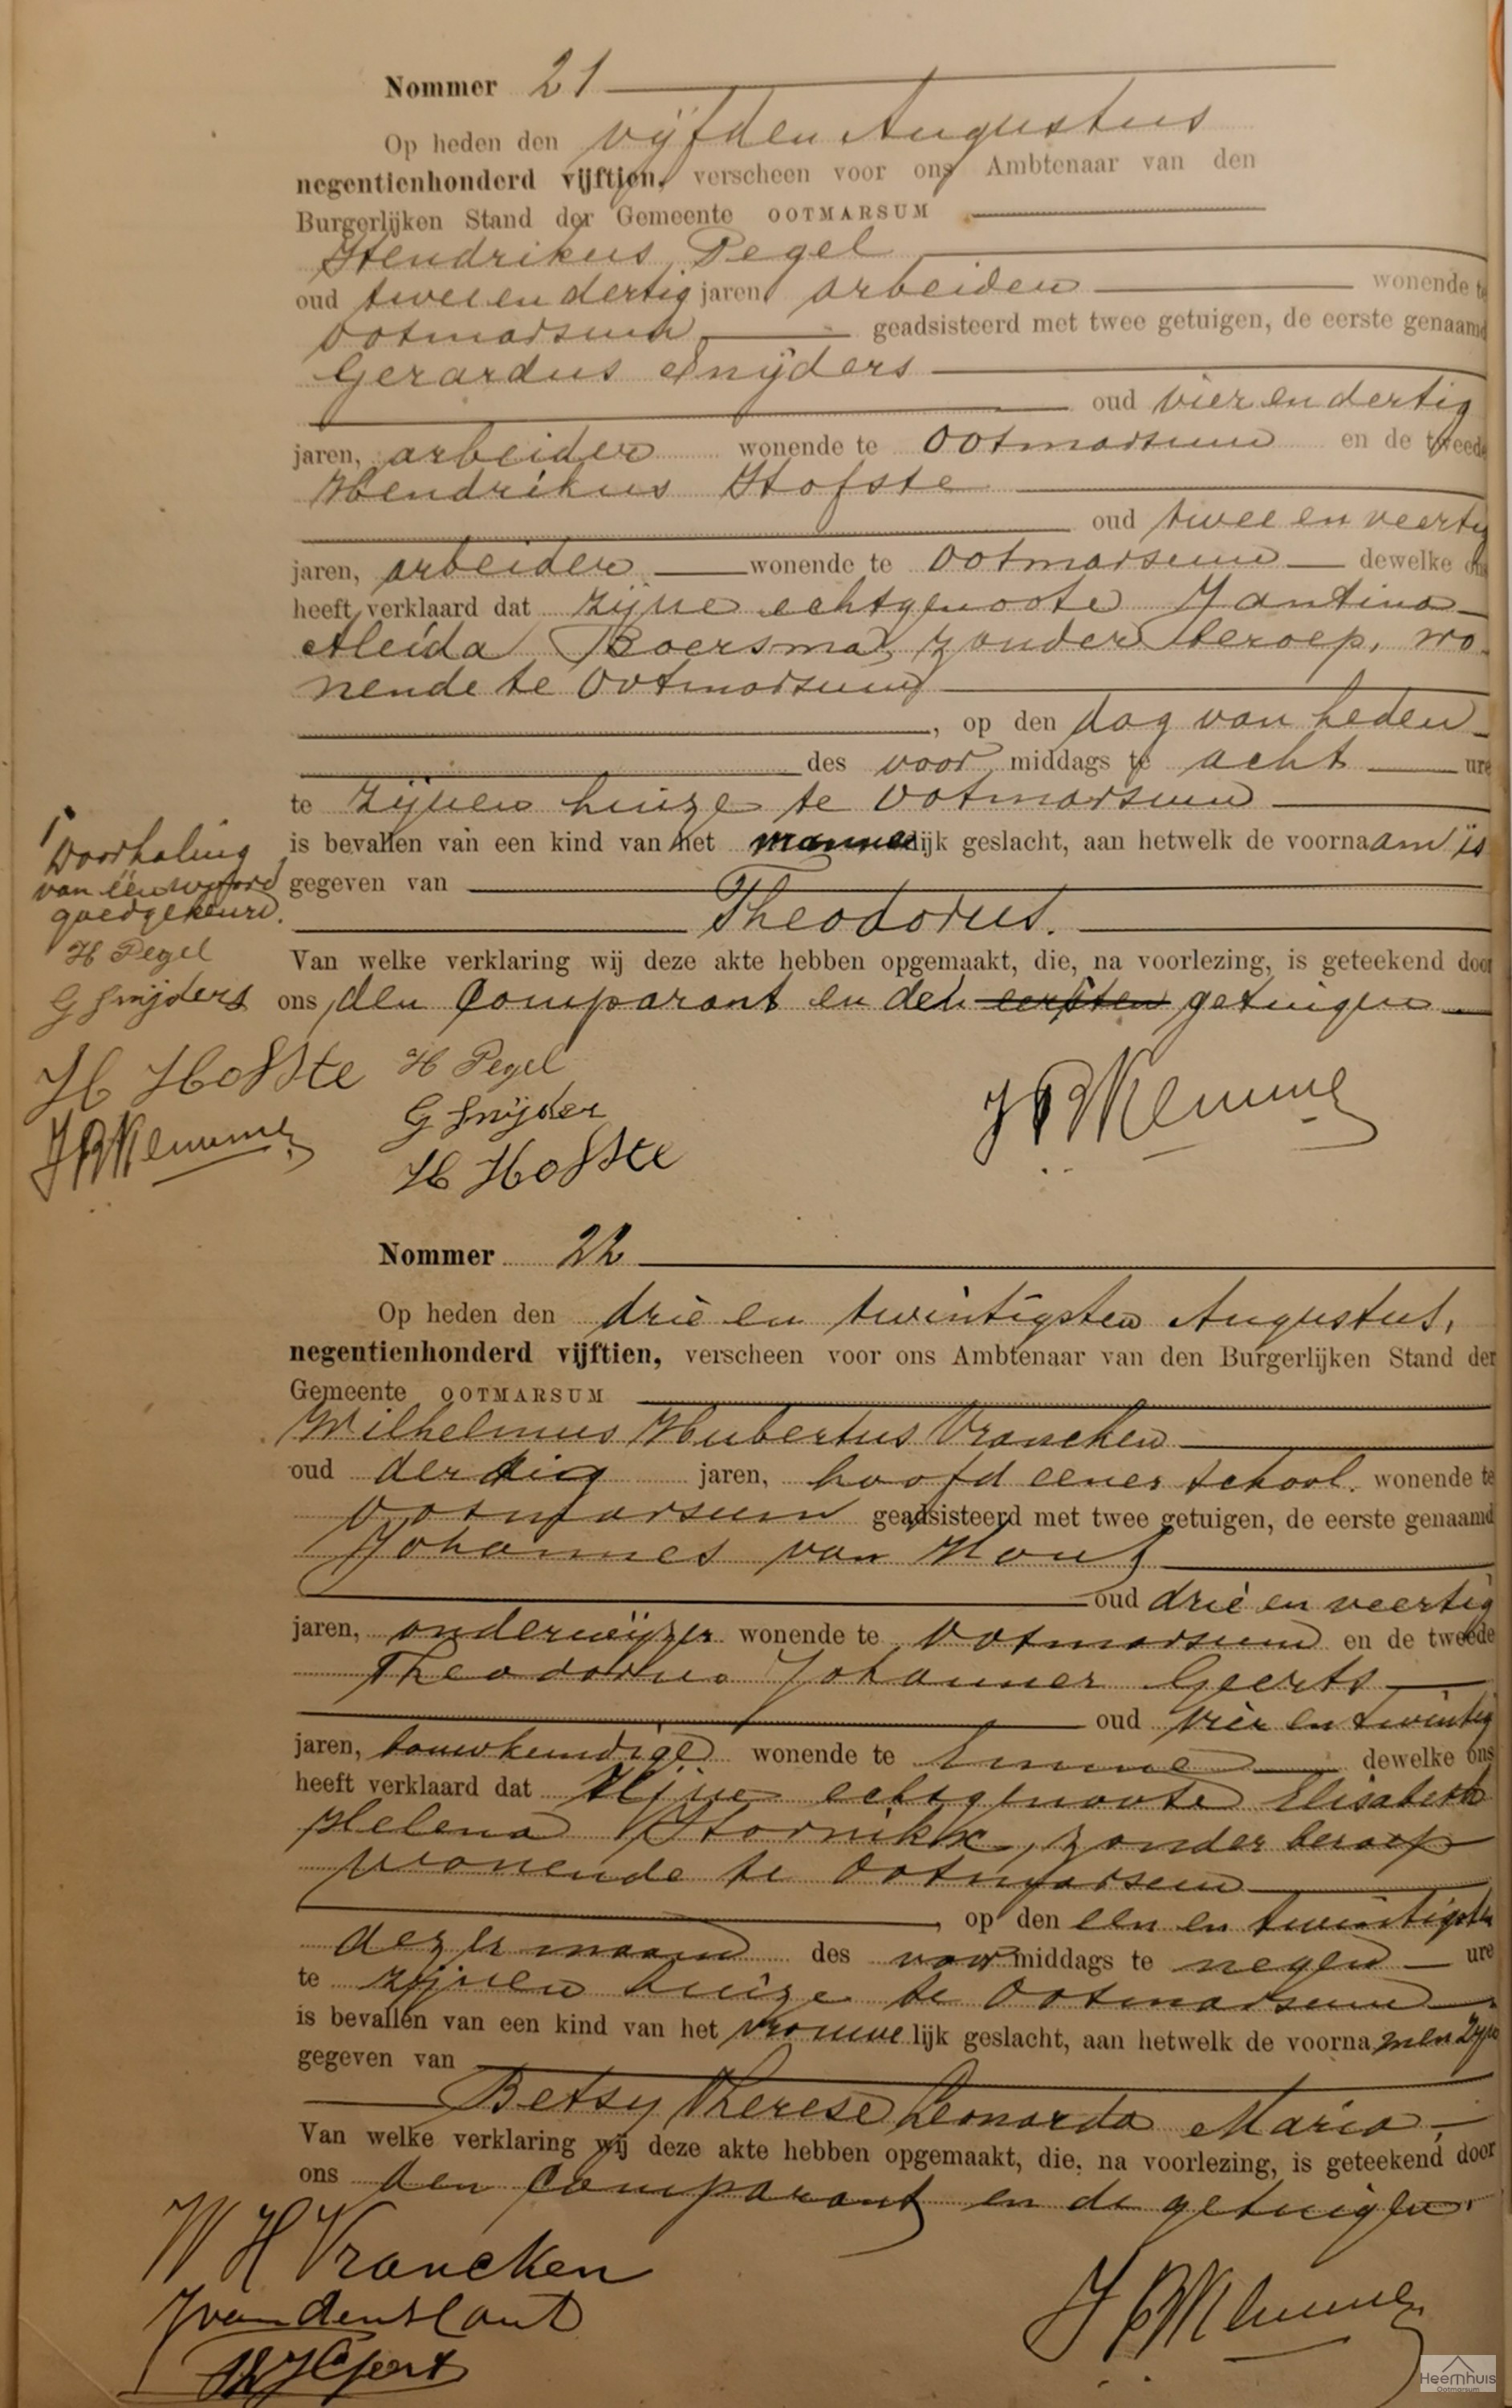 Nommer 21
Op heden den vijfden Augustus
negentienhonderd vijftien, verscheen voor ons Ambtenaar van den
Burgerlijken Stand der Gemeente OOTMARSUM
Hendrikus Pegel
oud twee en dertig jaren arbeider wonende te
Ootmarsum geadsisteerd met twee getuigen, de eerste genaamd
Gerardus Snijders
oud vier en dertig
jaren, arbeider wonende te Ootmarsum en de tweede
Hendrikus Hofste
oud twee en veertig
jaren, arbeider wonende te Ootmarsum dewelke ons
heeft verklaard dat zijne echtgenoote Jantina
Aleida Boersma, zonder beroep, wo-
nende te Ootmarsum
, op den dag van heden
des voor middags te acht ure
te zijnen huize te Ootmarsum
is bevallen van een kind van het mannelijk geslacht, aan hetwelk de voornaam is
gegeven van
Theodorus.
Van welke verklaring wij deze akte hebben opgemaakt, die, na voorlezing, is geteekend door
ons, den Comparant en den eersten getuigen
Doorhaling
van één woord
goedgekeurd.
H Pegel
G Snijders
H Hofste
JBKemme
H Pegel
G Snijder
H Hofste
JBKemme
Nommer 22
Op heden den drie en twintigsten Augustus,
negentienhonderd vijftien, verscheen voor ons Ambtenaar van den Burgerlijken Stand der
Gemeente OOTMARSUM
Wilhelmus Hubertus Vrancken
oud dertig jaren, hoofd eener school. wonende te
Ootmarsum geadsisteerd met twee getuigen, de eerste genaamd
Johannes van Hout
oud drie en veertig
jaren, onderwijzer wonende te Ootmarsum en de tweede
Theodorus Johannes Geerts
oud vier en twintig
jaren, bouwkundige wonende te dewelke ons
heeft verklaard dat zijne echtgenoote Elisabeth
Helena zonder beroep
wonende te Ootmarsum
, op den een en twintigsten
dezer maand des voor middags te negen ure
te zijnen huize te Ootmarsum
is bevallen van een kind van het vrouwelijk geslacht, aan hetwelk de voornamen zijn
gegeven van
Betsy Therese Leonarda Maria,
Van welke verklaring wij deze akte hebben opgemaakt, die, na voorlezing, is geteekend door
ons den Comparant en de getuigen.
W H Vrancken
J van den Hout
JBKemme
Heemhuis
Ootmarsum